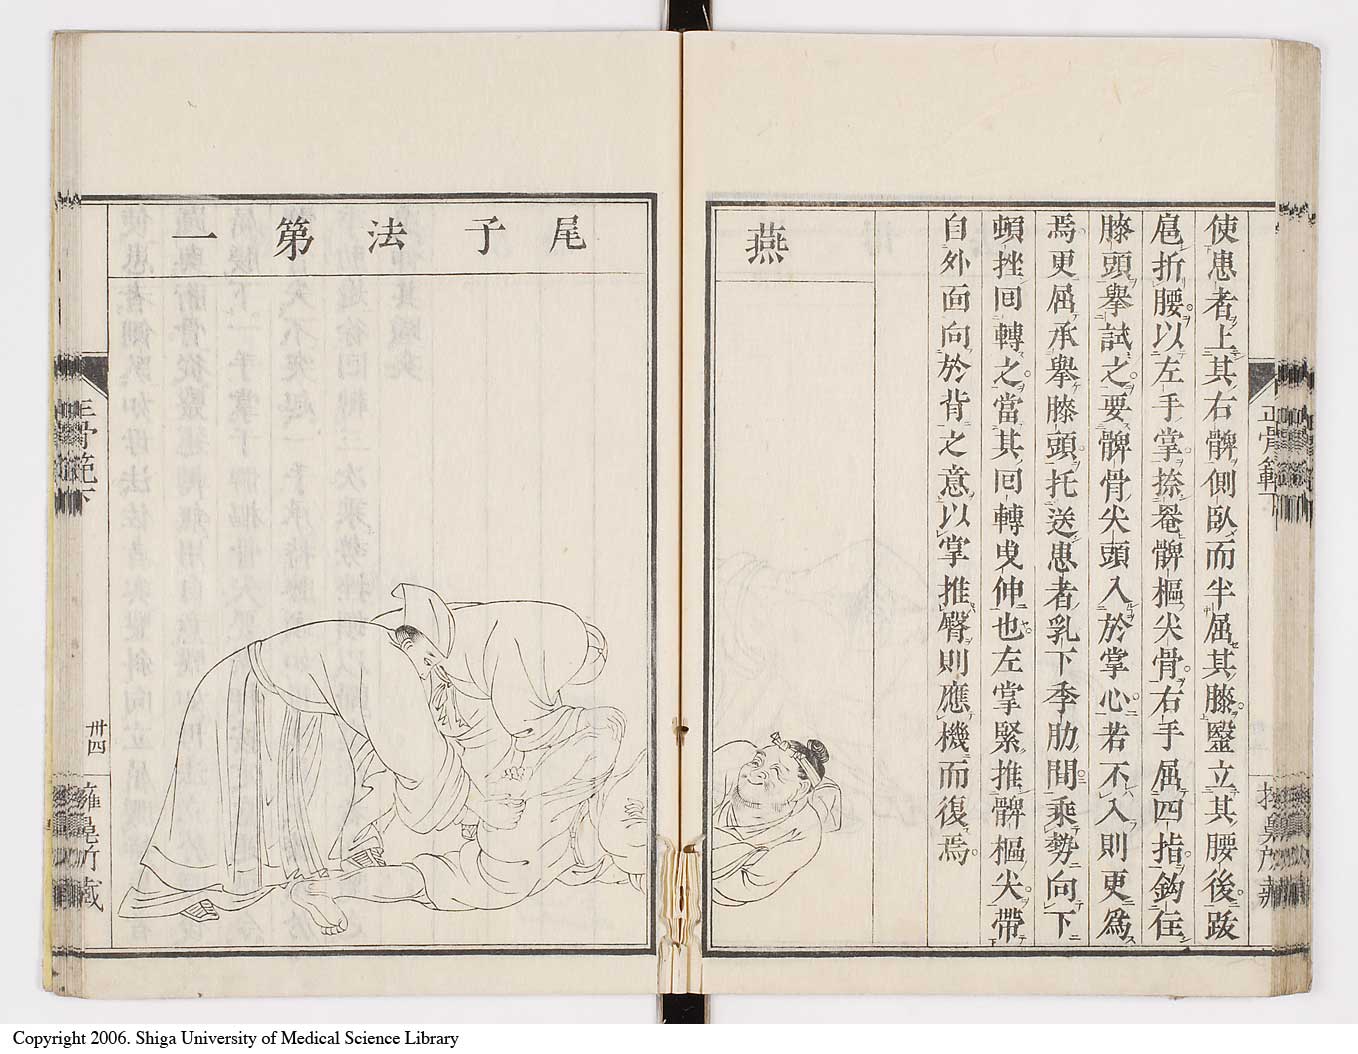 使患者上其右髀側臥而半屈其膝竪立其腰後跋
扈折腰以左手掌捺罨髀樞尖骨右手屈四指鈎住
膝頭擧試之要髀骨尖頭入於掌心若不入則更爲
焉更屈承擧膝頭托送患者乳下季肋間乘勢向下
頓挫回轉之當其回轉曳伸也左掌緊推髀樞尖帶
自外面向於背之意以掌推臀則應機而復焉
燕
尾子法第一
正骨範下
正骨範下
卅四
Copyright 2006. Shiga University of Medical Science Library